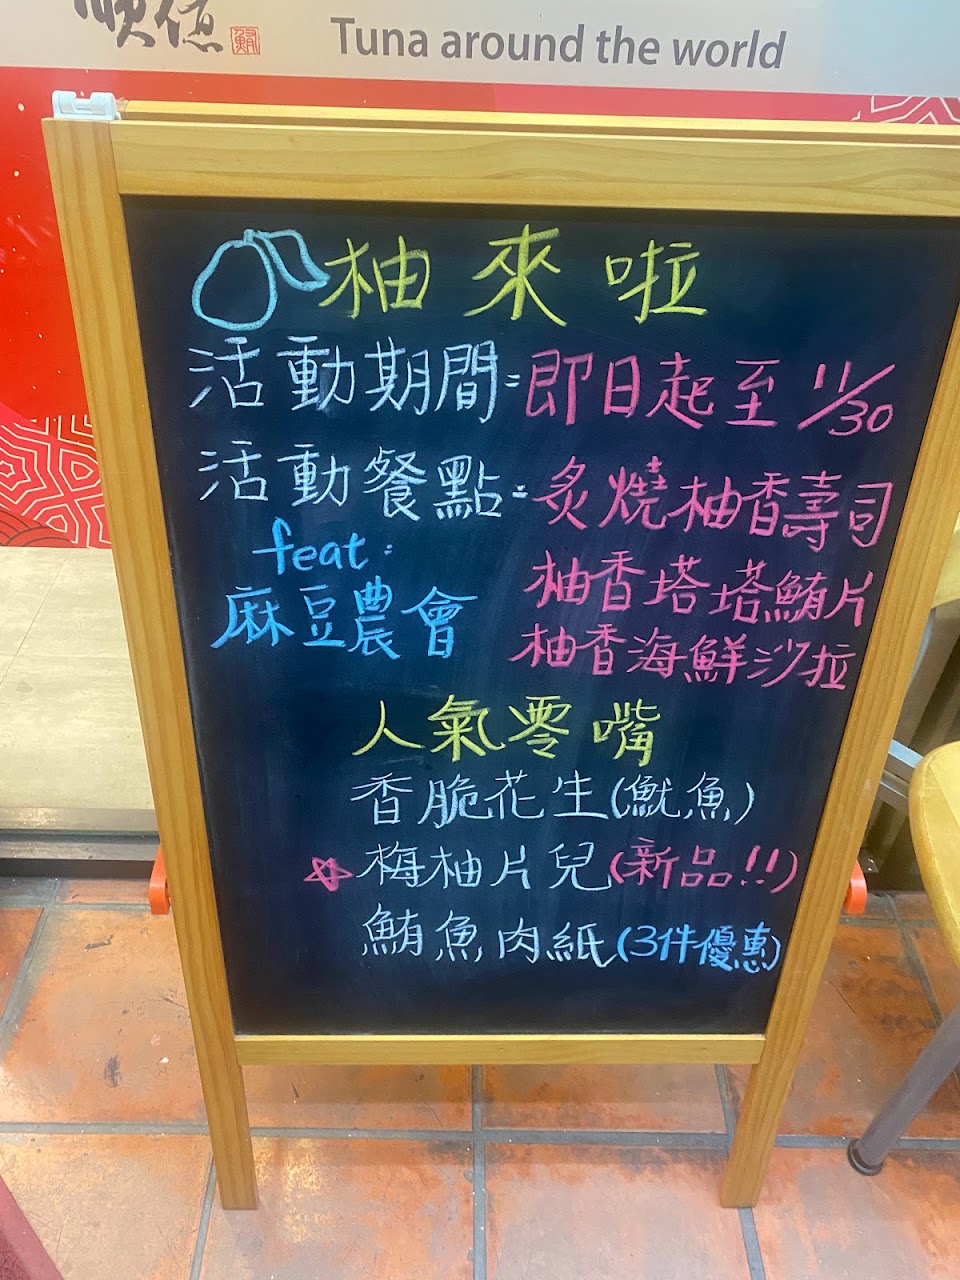 順億 鮪
Tuna around the world
柚來啦
活動期間：即日起至 11/30
活動餐點：炙燒柚香壽司
柚香塔塔鮪片
柚香海鮮沙拉
feat：
麻豆農會
人氣零嘴
香脆花生(魷魚)
☆梅柚片兒(新品!!)
鮪魚肉紙(3件優惠)